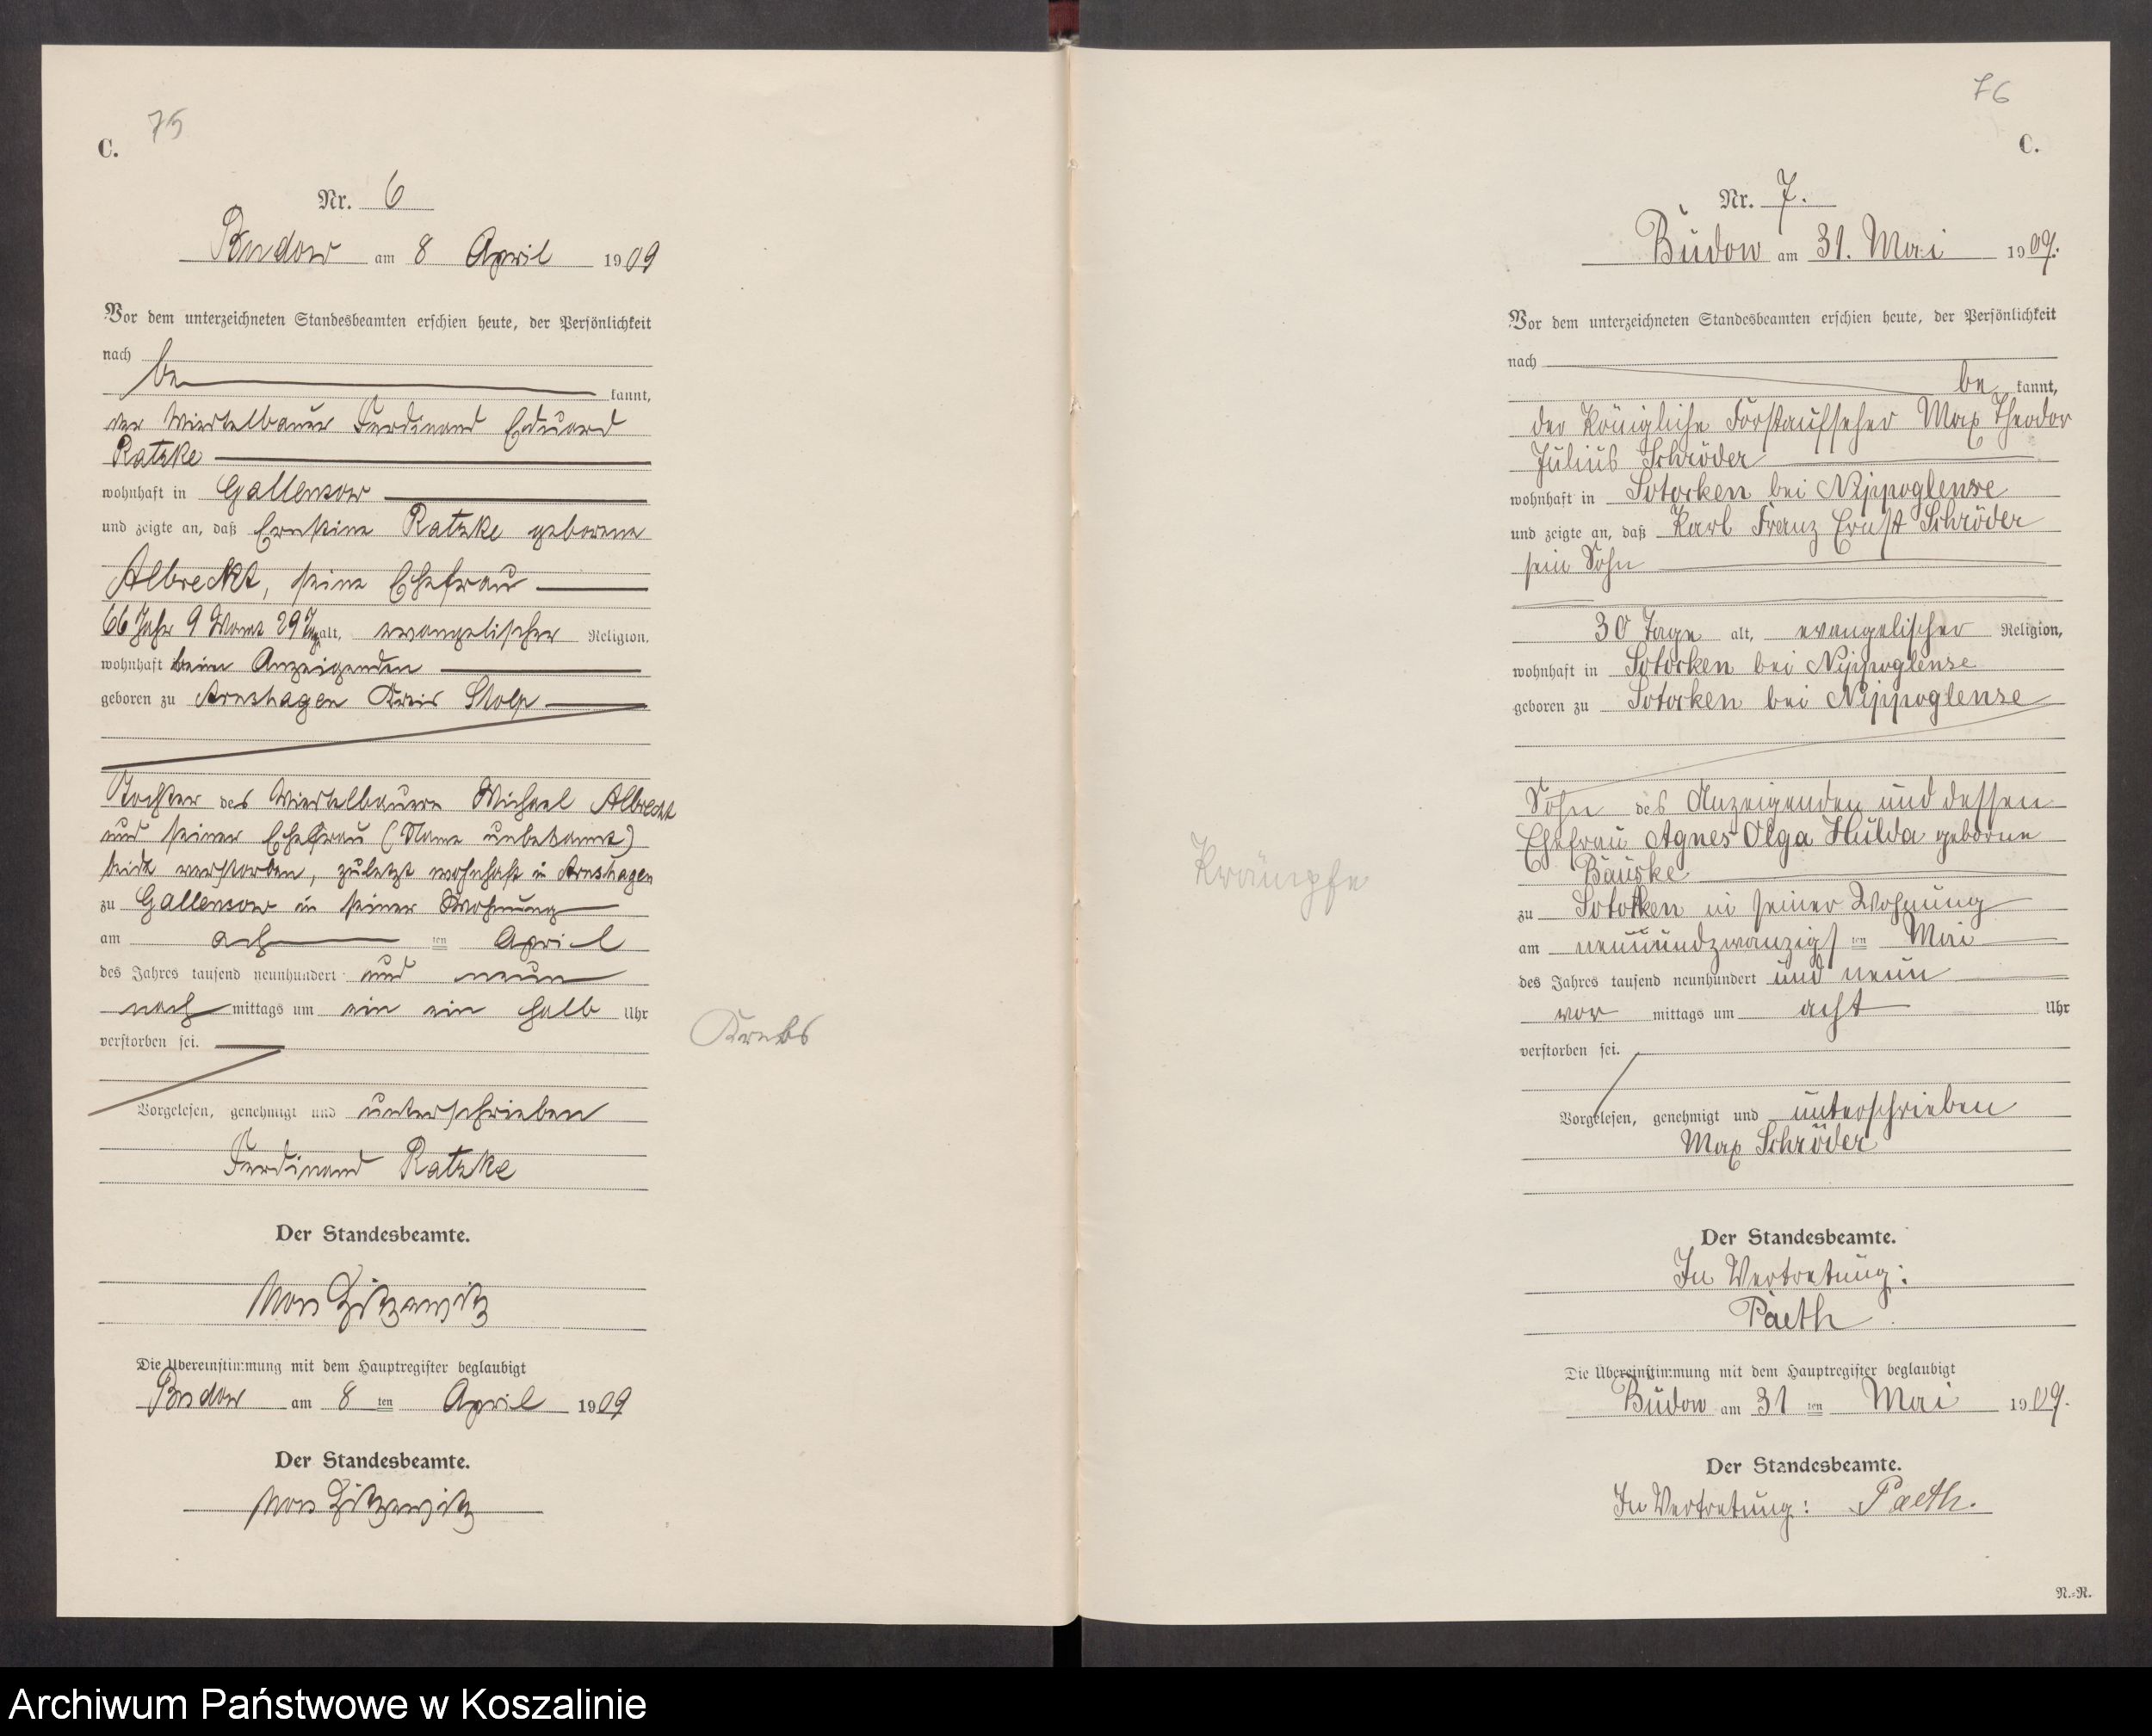 75
C.
Nr. 6
Budow am 8 April 1909
Vor dem unterzeichneten Standesbeamten erschien heute, der Persönlichkeit
nach
be kannt,
der Viertelbauer Ferdinand Eduard
Ratzke
wohnhaft in Gallensow
und zeigte an, daß Ernstine Ratzke geborene
Albrecht, seine Ehefrau
66 Jahr 9 Monat 29 Tage alt, evangelischer Religion,
wohnhaft beim Anzeigenden
geboren zu Arnshagen Kreis Stolp
Tochter des Viertelbauern Michael Albrecht
und seiner Ehefrau (Name unbekannt)
beide verstorben, zuletzt wohnhaft in Arnshagen
zu Gallensow in seiner Wohnung
am ach ten April
des Jahres tausend neunhundert und neun
nach mittags um ein ein halb Uhr
verstorben sei.
Krebs
Vorgelesen, genehmigt und unterschrieben
Ferdinand Ratzke
Der Standesbeamte.
von Zitzewitz
Die Übereinstimmung mit dem Hauptregister beglaubigt
Budow am 8 ten April 1909
Der Standesbeamte.
von Zitzewitz
76
C.
Nr. 7.
Budow am 31. Mai 1909.
Vor dem unterzeichneten Standesbeamten erschien heute, der Persönlichkeit
nach
be kannt,
der Königliche Forstaufseher Max Theodor
Julius Schröder
wohnhaft in Sotorken bei Nippoglense
und zeigte an, daß Karl Franz Ernst Schröder
sein Sohn
30 Tage alt, evangelischer Religion,
wohnhaft in Sotorken bei Nippoglense
geboren zu Sotorken bei Nippoglense
Sohn des Anzeigenden und dessen
Ehefrau Agnes Olga Hulda geborne
Bauske
zu Sotorken in seiner Wohnung
am neunundzwanzigs ten Mai
des Jahres tausend neunhundert und neun
vor mittags um acht Uhr
verstorben sei.
Krämpfe
Vorgelesen, genehmigt und unterschrieben
Max Schröder
Der Standesbeamte.
In Vertretung:
Paeth
Die Übereinstimmung mit dem Hauptregister beglaubigt
Budow am 31 ten Mai 1909.
Der Standesbeamte.
In Vertretung: Paeth.
N.-R.
Archiwum Państwowe w Koszalinie